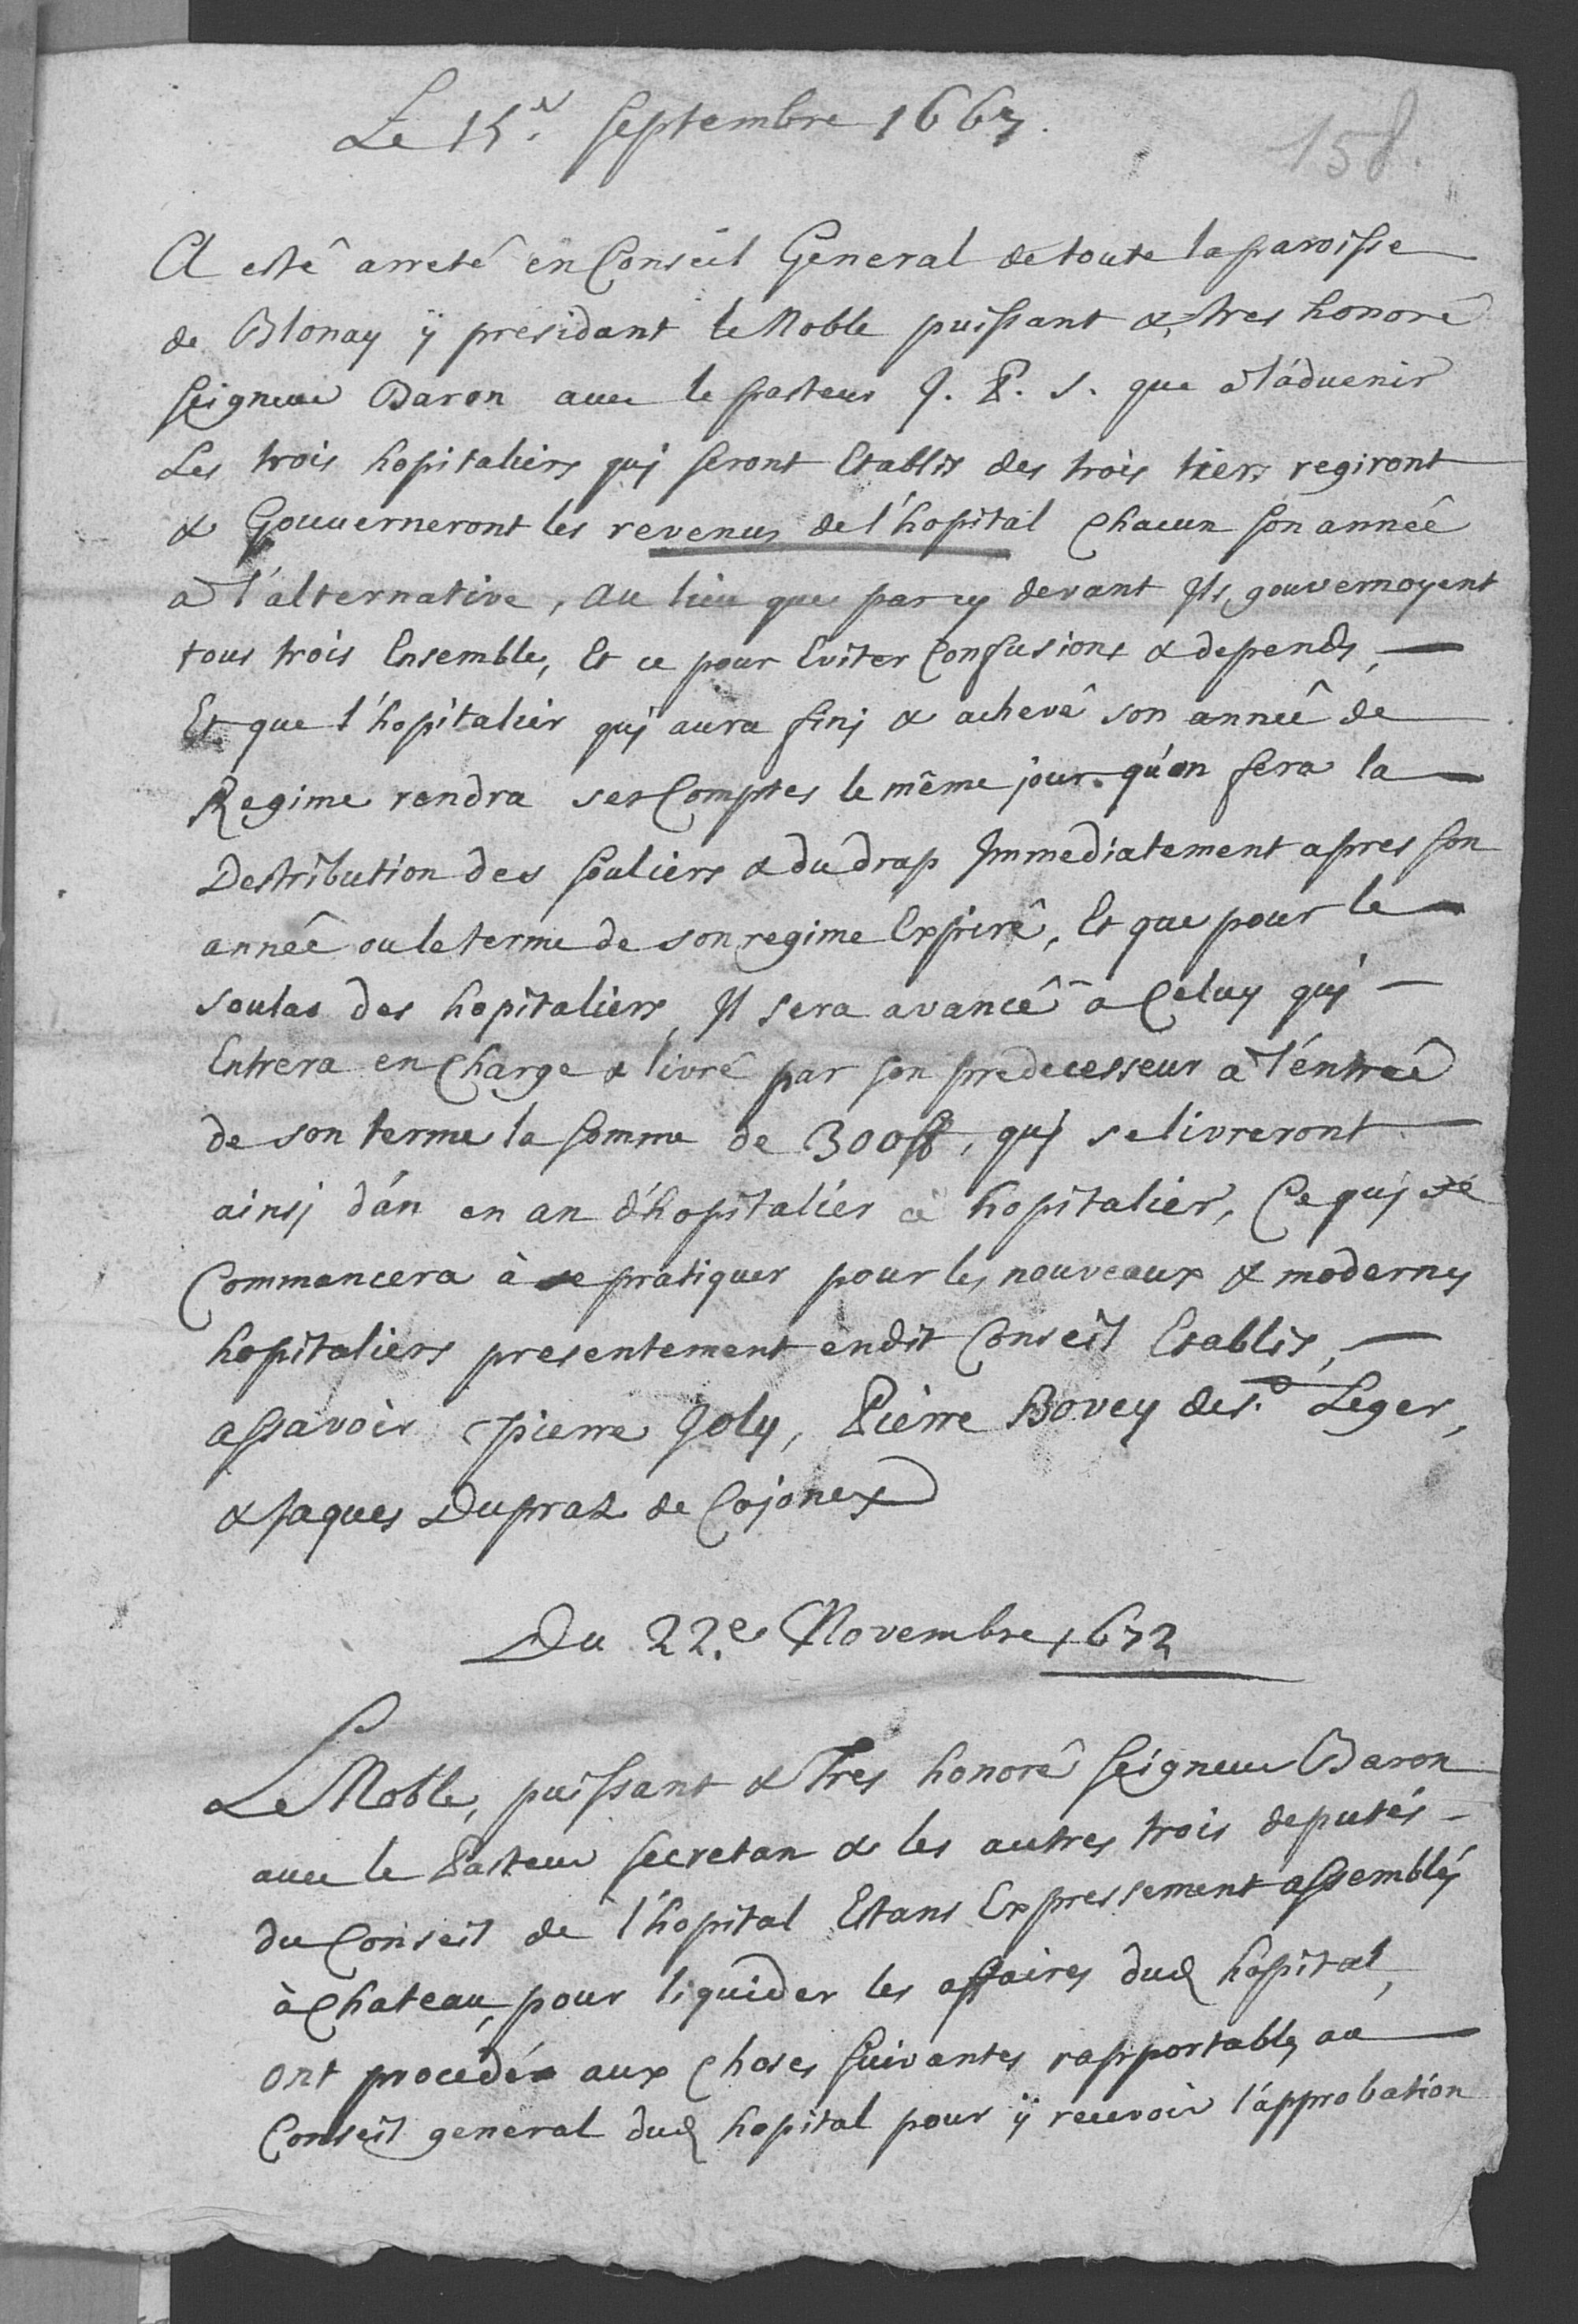 Le 15.e Septembre 1667.
158.
A esté arreté en Conseil General de toute la paroisse
de Blonay ÿ presidant le Noble puissant & tres honoré
Seigneur Baron avec le pasteur J. P. S. que a l'advenir
Les trois hopitaliers qui seront Etablis des trois tiers regiront
& Gouverneront les revenus de l'hopital Chacun son année
a l'alternative, au lieu que par cy devant Ils gouvernoyent
tous trois Ensemble, Et ce pour Eviter Confusions & depends,
Et que l'hopitalier qui aura finj & achevé son année de
Regime rendra ses Comptes le même jour qu'on fera la
Destribution des souliers & du drap Immediatement apres son
année ou le terme de son regime Expiré, Et que pour le
soulas des hopitaliers, Il sera avancé a Celuy qui
Entrera en Charge & livré par son predecesseur a l'entreé
de son terme la somme de 300ff, qui se livreront
ainsj d'an en an d'hopitalier à hopitalier, Ce qui se
Commancera à se pratiquer pour les nouveaux & modernes
hopitaliers presentement endit Conseil Etablis,
assavoir pierre Joly, Pierre Bovey de s.t Leger,
& Jaques Dupraz de Cojonex
Du 22.e Novembre 1672
Le Noble, puissant & Tres honoré seigneur Baron
avec le Pasteur secretan & les autres trois deputés
du Conseil de l'hopital Estans Expressement assemblés
à Chateau, pour liquider les affaires dud hopital,
ont procédé aux Choses suivantes rapportables au
Conseil general dud hopital pour ÿ recevoir l'approbation